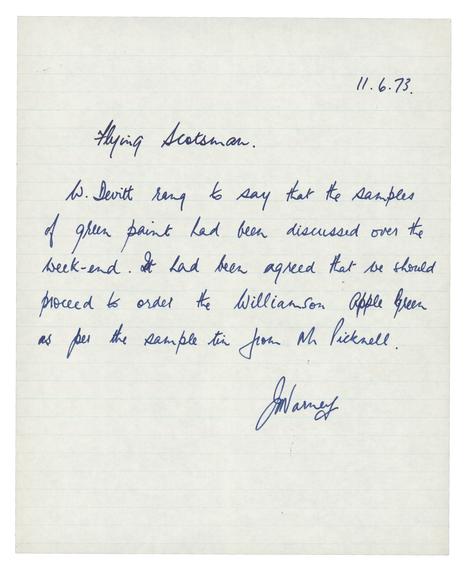 11.6.73.
Flying Scotsman.
W. Devitt rang to say that the samples
of green paint had been discussed over the
week-end. It had been agreed that we should
proceed to order the Williamson Apple Green
as per the sample tin from Mr Picknell.
JM Varney